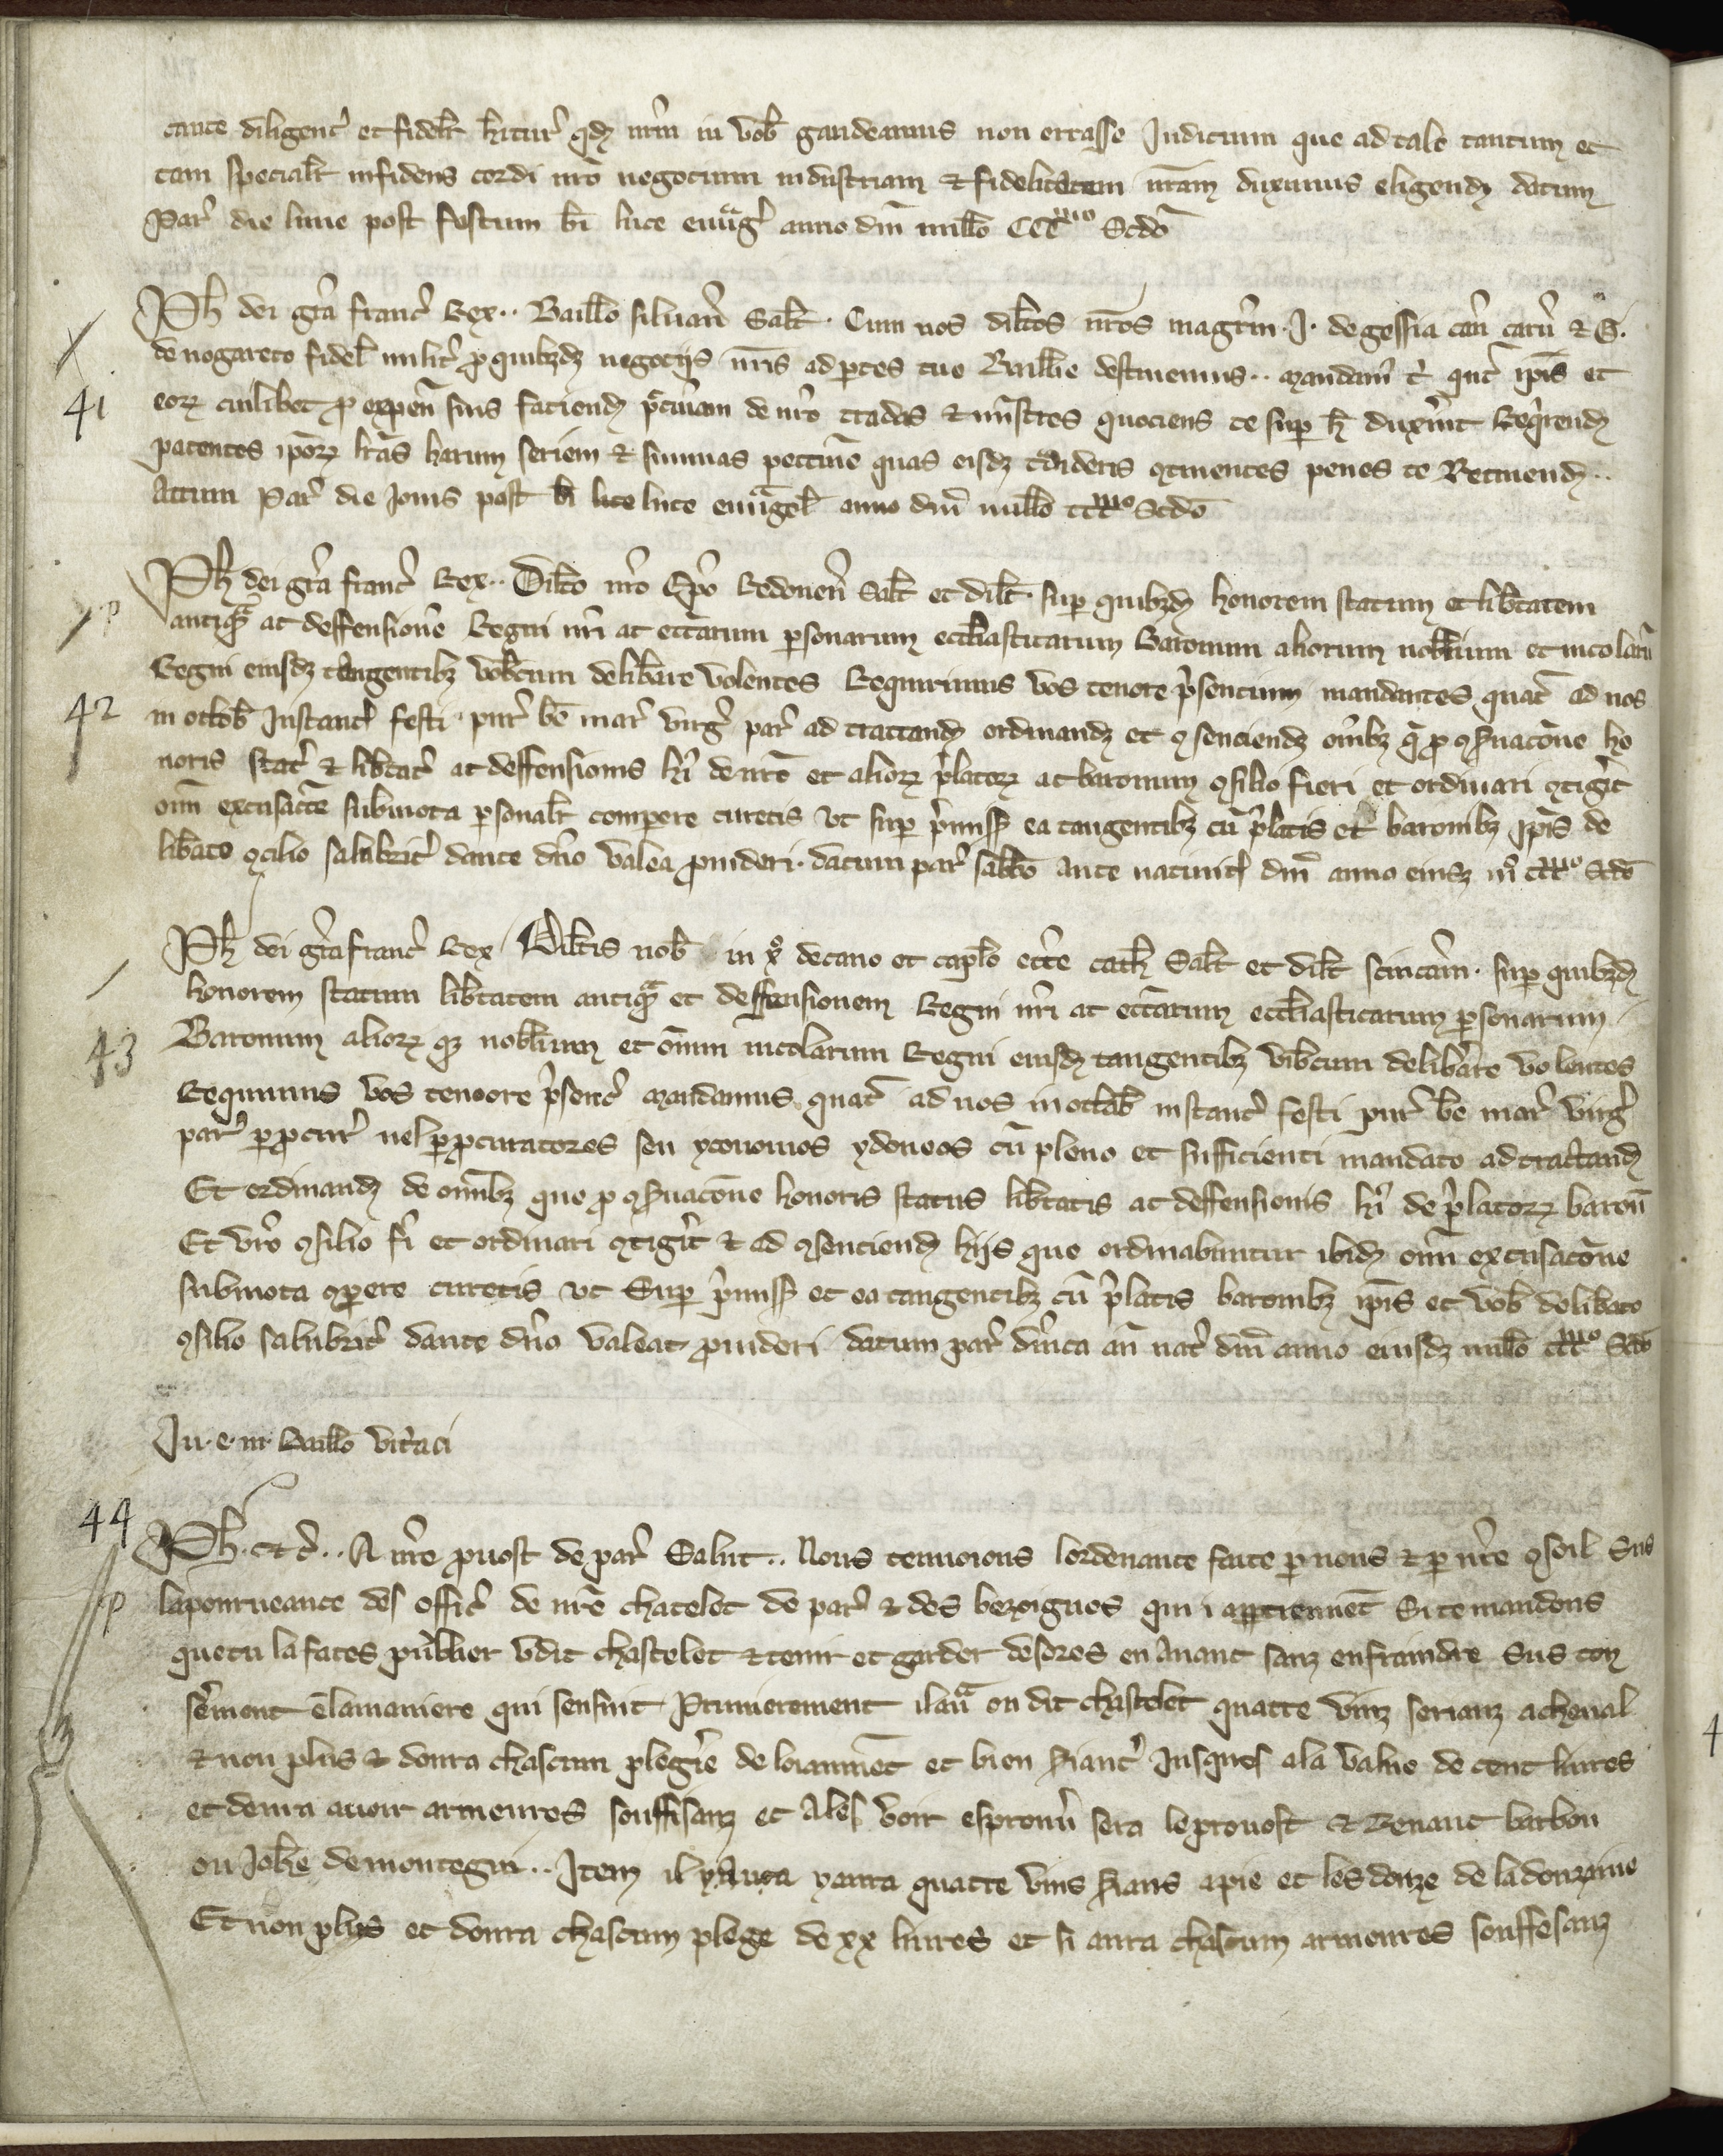 caute diligent̉ et fidelr̄ hr̄itur̉ qd̛ nr̄m in vob̄ gaudeamus non errasse Iudicium que ad tale tantum et
tam specialr̄ infidens cordi nr̄o negocium industriam ⁊ fidelitatem nr̄am duximus eligend̛ datum
Par̉ die lune post festum bī luce euu̾ng̉ anno dn̄i mill̄o CCC̾ᵐᵒ Scdō
Ph̄ dei gr̄a franc̉ Rex .. Baill̄o siluan̄ Salt̄ . Cum nos dilc̄tos nr̄os magr̄m . J . de gessia can̄ carn̄ ⁊ G.
de nogareto fidel̄ milit̉ ꝓ quibzdꝫ negocijs nr̄is ad ꝑtes tue Baill̄ie destinemus .. mandam̄ t̉ qnt̉ ip̄is et
eorꝝ cuilibet ꝓ expen̄ suis faciend̛ p̄cuniam de nr̄o tradas ⁊ mīstres quociens te sup̄ h̄ duxīnt Req̄rend̛
patentes ip̄orꝝ lr̄as harum seriem ⁊ summas peccunie quas eisdꝫ tradideris ꝯtinentes penes te Retinend̛ ..
Actum Par̉ die Jouis post bī luce luce euu̾ngel̄ anno dn̄i mill̄o ccc̾ᵐᵒ Scdō
Ph̄ dei gr̄a franc̉ Rex .. Dilc̄o nr̄o Ep̄o Redonen̄ Salt̄ et dilt̄ . sup̄ quibzd̛ honorem statum et lib̄tatem
antiq̄̄ ac deffensionē Regni nr̄i ac ecc̄arum ꝑsonarum eccl̄iasticarum Baronum aliorum nobilium et incolarū
Regni eiusdꝫ tangentibꝫ vob̄cum delib̄are volentes Requirimus vos tenore p̄sentium mandantes quat̉ ad nos
in octob̄ Instant̉ festi pur̉ bē mar̉ virg̉ par̉ ad tractand̛ ordinandꝫ et ꝯsenciendꝫ om̄ibꝫ q̄ ꝓ ꝯs̄uacōne ho
noris stat̉ ⁊ lib̄tat̉ ac deffensionis h̄i de nr̄o et aliorꝝ p̄latorꝝ ac baronum ꝯsilio fieri et ordinari ꝯtig̉it
om̄i excusac̄ōe submota ꝑsonalr̄ compere curetis vt sup̄ p̄miss̄ ea tangentibꝫ cū p̄latis et baronibꝫ ip̄is de
lib̄ato ꝯcilio salubrit̉ dante dn̄o valea ꝓuideri . datum par̉ sabb̄o ante natiuit̉ dn̄i anno eiusꝫ m̊ ccc̾ᵐᵒ Scdō
Ph̄ dei gr̄a franc̉ Rex Dilc̄tis nob̄ in xp̄o decano et capl̄o ecc̄e cath̄ Salt̄ et dilt̄ . sup̄ quibzd̛
honorem statum lib̄tatem antiq̄̄ et deffensionem Regni nr̄i ac ecc̄arum eccl̄iasticarum ꝑsonarum
Baronum aliorꝝ qꝫ nobilium et om̄ium incolarum Regni eiusdꝫ tangentibꝫ vob̄cum delib̄are volentes
Requimus vos tenoore p̄sent̉ mandamus quat̉ ad nos in octab̄ instant̉ festi pur̉ bē mar̉ virg̉
par̉ ꝑ ꝓcur̉ uel ꝑ ꝓcuratores seu yconomos ydoneos cū pleno et sufficienti mandato ad tractand̛
Et ordinand̛ de om̄ibꝫ que ꝓ ꝯs̄uacōne honoris status lib̄tatis ac deffensionis h̄i de p̄latorꝝ baron̄
Et vr̄o ꝯsilio fī et ordinari ꝯtig̉it ⁊ ad ꝯsenciend̛ hijs que ordinabuntur ibid̛ om̄i excusacōne
submota ꝯpere curetis vt Sup̄ p̄miss̄ et ea tangentibꝫ cū p̄latis baronibꝫ ip̄is et vob̄ delib̄ato
ꝯsilio salubrit̉ dante dn̄o valeat ꝓuideri datum par̉ dn̄ica an̄ nat̉ dn̄i anno eiusdꝫ mill̄o ccc̾ᵐᵒ Scdō
Iu . e . m . Baill̄o vit̉aci
Ph̄ . et c̉ .. A nr̄e ꝓuost de par̉ Salut .. Nous tenuoions lordenance faite ꝑ nous ⁊ ꝑ nr̄e ꝯseil Sus
lapourueance des offic̉ de nr̄e chatelet de par̉ ⁊ des bezoignes qui i appt̄iennēt Si te mandons
que tu la faces pūblier v̄dit chastelet ⁊ tenir et garder desores en Auant sanz enfraindre Sus ton
sr̄ement ē la maniere qui sensuit Primierement il aur̄a ou dit chastelet quatre vinz serianz a cheual
⁊ non plus ⁊ donra chascun plegr̄ie de loiaumēt et bien s̄iant̉ Jusques a la value de cent liures
et deura auoir armeures souffisanz et Ales v̄oir esprouū sera le prouost ⁊ Renaut barbou
ou Joh̄e de montegni .. Item il yaura yaura quatre vins s̄ians apie et les douze de la douzaine
Et non plus et donra chascum plege de xx liures et si aura chascum armeures souffesanz
41
42
43
44